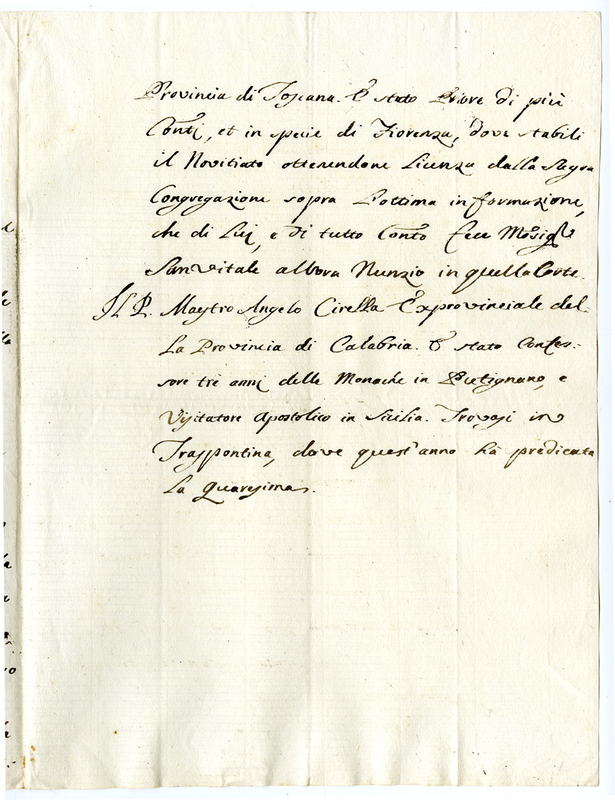 Provincia di Toscana. È stato Priore di più
Conti, et in specie di Fiorenza, dove stabilì
il Novitiato ottenendone Licenza dalla Sagra
Congregazione sopra l'ottima informazione,
che di Lui, e di tutto Conto fece Monsigre
Sanvitale allora Nunzio in quella Corte.
Il P. Maestro Angelo Cirella Exprovinciale del-
la Provincia di Calabria. È stato Confes-
sore trè anni delle Monache in Putignano, e
Visitatore Apostolico in Sicilia. Trovasi in
Traspontina, dove quest'anno hà predicata
la Quaresima.